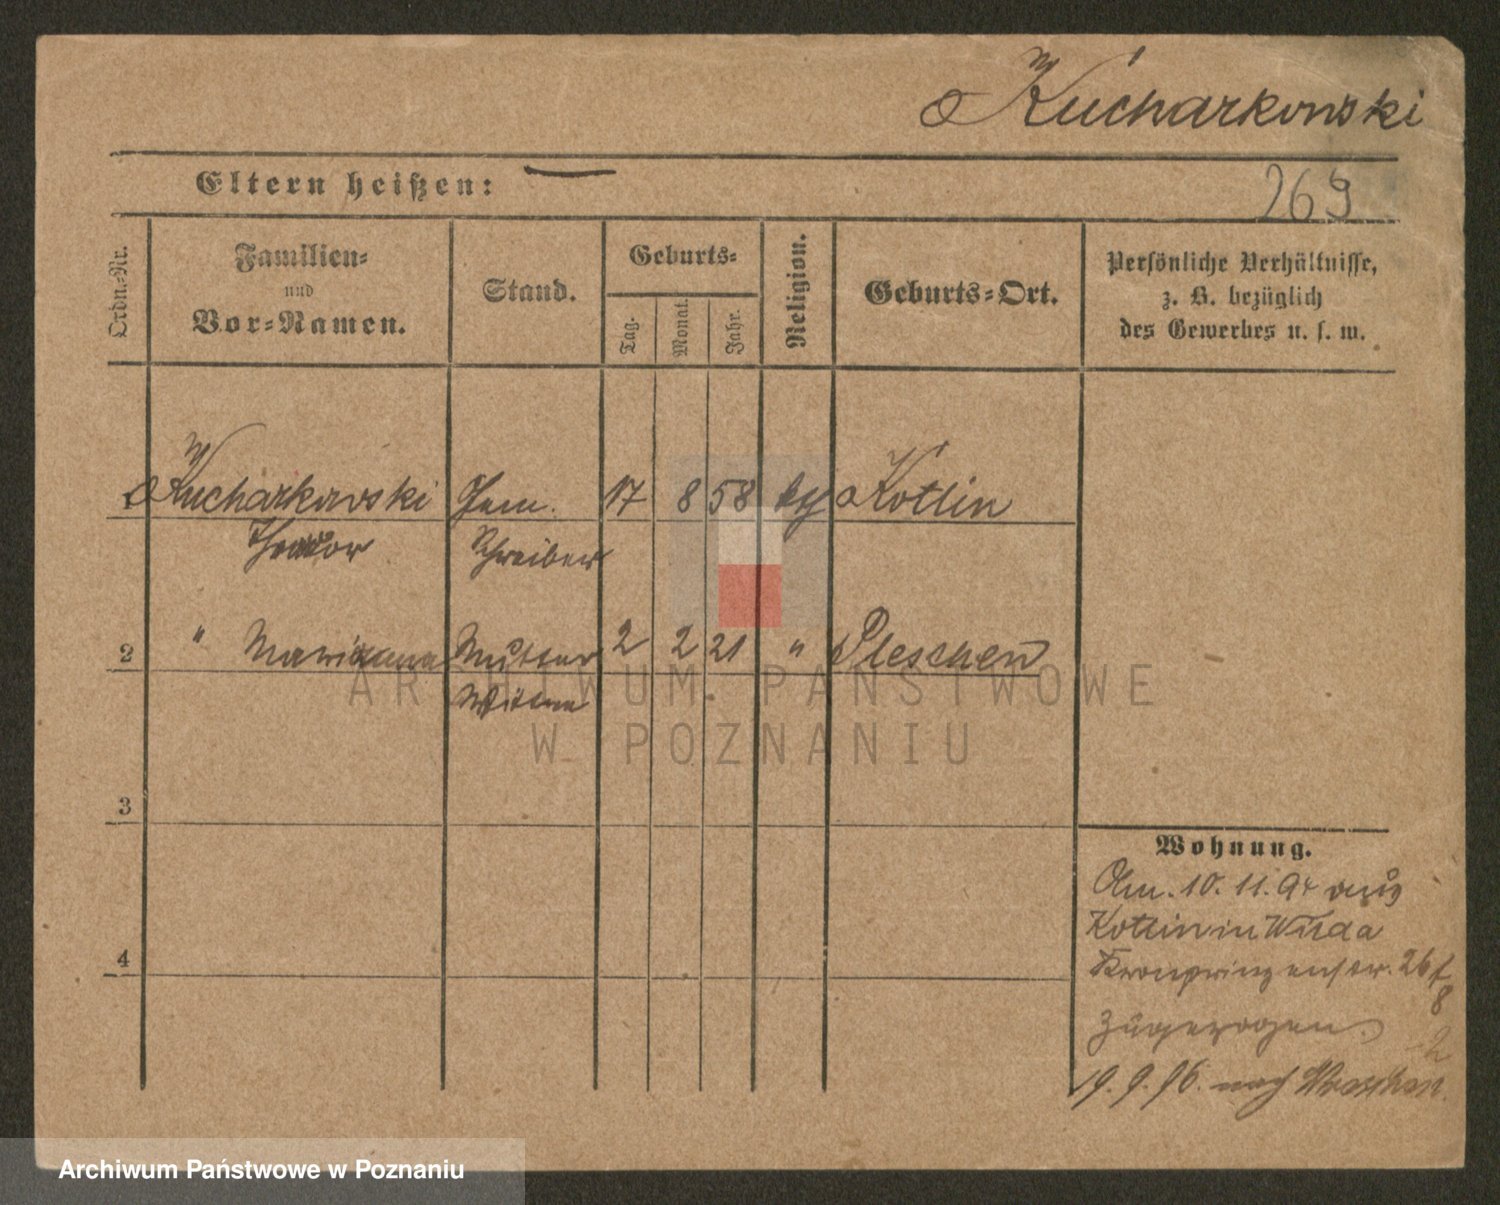 Kucharkowski
Eltern heißen: —
269
Ordn.-Nr.
Familien-
und
Vor-Namen.
Stand.
Geburts-
Tag.
Monat.
Jahr.
Religion.
Geburts-Ort.
Persönliche Verhältnisse,
z. B. bezüglich
des Gewerbes u. s. w.
1 Kucharkowski Gem. 17 8 58 kth Kotlin
Theodor Schreiber
2 " Marianna Mutter 2 2 21 " Pleschen
Wittwe
ARCHIWUM PAŃSTWOWE
W POZNANIU
3
4
Wohnung.
Am. 10. 11. 94 aus
Kotlin in Wilda
Kronprinzenstr. 26
8
zugezogen
2
19. 9. 96. nach Wreschen.
Archiwum Państwowe w Poznaniu